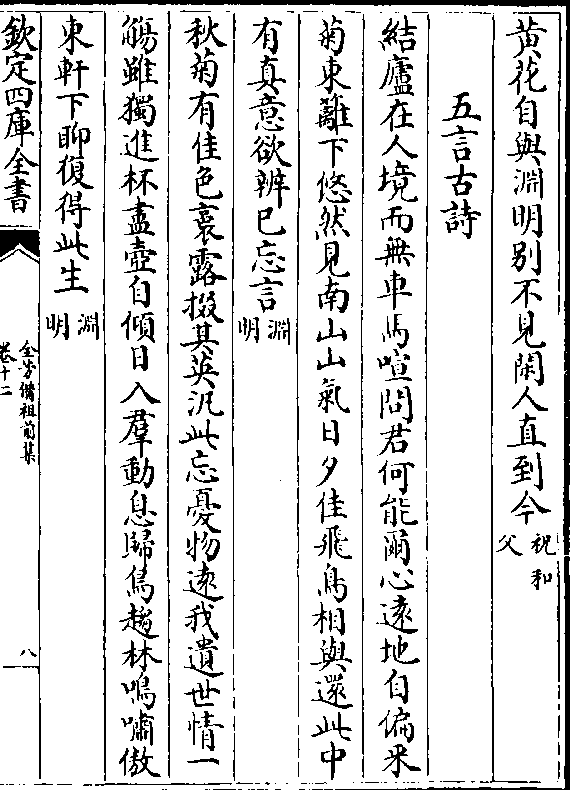 黄花自與淵明别不見閑人直到今祝和父
五言古詩
結廬在人境而無車馬喧問君何能爾心遠地自偏采
菊東離下悠然見南山山氣日夕佳飛鳥相與還此中
有真意欲辨已忘言淵明
秋菊有佳色裛露掇其英汎此忘憂物遠我遺世情一
觴雖獨進杯盡壺自傾日入羣動息歸鳥趨林鳴嘯傲
東軒下聊復得此生淵明
欽定四庫全書
全芳備祖前集
卷十二
八